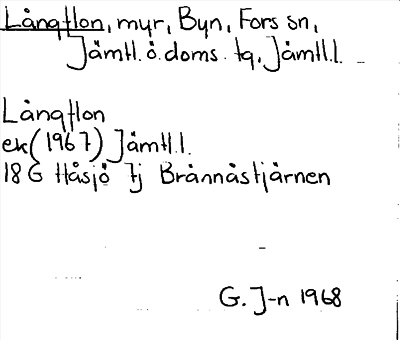 Långflon, myr, Byn, Fors sn,
Jämtl. ö. doms. tg, Jämtl.l.
Långflon
ek (1967) Jämtl.l.
18G Håsjö 7j Brännåstjärnen
G. J-n 1968